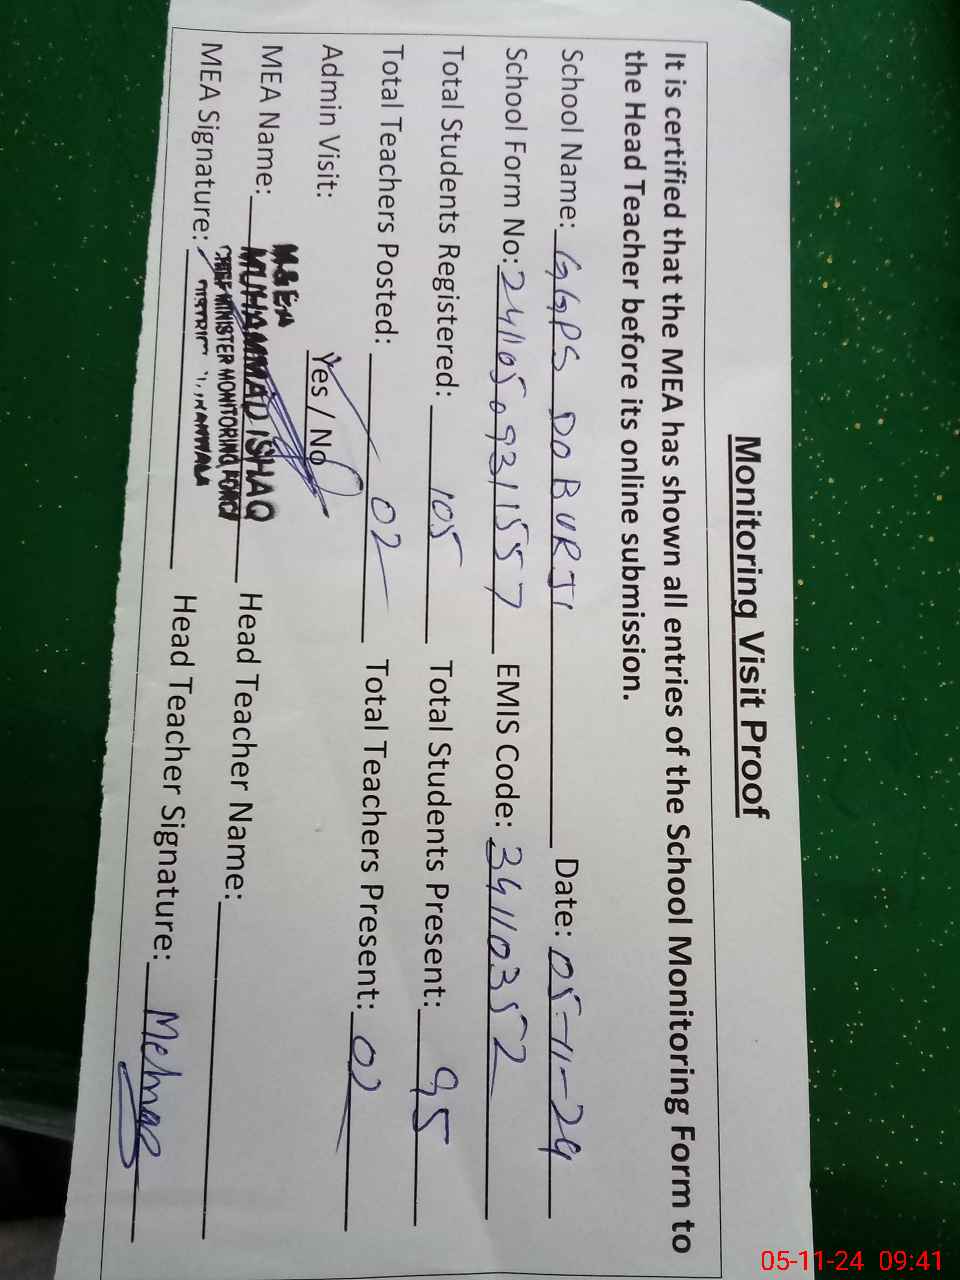 Monitoring Visit Proof
It is certified that the MEA has shown all entries of the School Monitoring Form to
the Head Teacher before its online submission.
School Name: GGPS DO BURJI Date: 05-11-24
School Form No: 2411050931557 EMIS Code: 34110352
Total Students Registered: 105 Total Students Present: 95
Total Teachers Posted: 02 Total Teachers Present: 02
Admin Visit: Yes / No
M&EA
MEA Name: MUHAMMAD ISHAQ Head Teacher Name:
CHIEF MINISTER MONITORING FORCE
MEA Signature: DISTRICT Head Teacher Signature: Mehnas
05-11-24 09:41